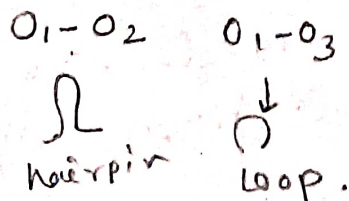 O₁ - O₂  O₁ - O₃
hairpin  Loop.